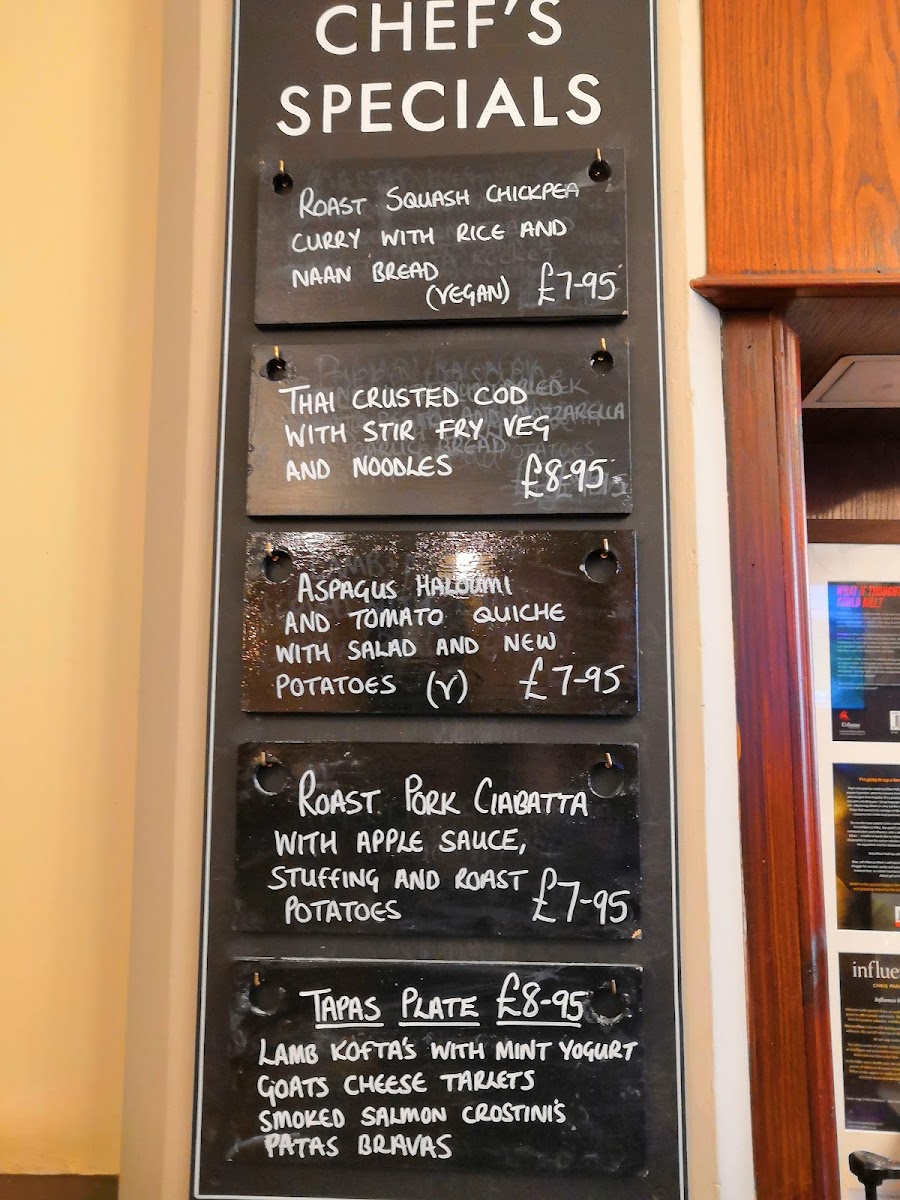 CHEF'S
SPECIALS
ROAST SQUASH CHICKPEA
CURRY WITH RICE AND
NAAN BREAD
(VEGAN) £7-95
THAI CRUSTED COD
WITH STIR FRY VEG
AND NOODLES £8-95
ASPAGUS HALOUMI
AND TOMATO QUICHE
WITH SALAD AND NEW
POTATOES (V) £7-95
ROAST PORK CIABATTA
WITH APPLE SAUCE,
STUFFING AND ROAST
POTATOES £7-95
TAPAS PLATE £8-95
LAMB KOFTA'S WITH MINT YOGURT
GOATS CHEESE TARLETS
SMOKED SALMON CROSTINI'S
PATAS BRAVAS
WHAT IF THOUGHT
COULD KILL?
influe